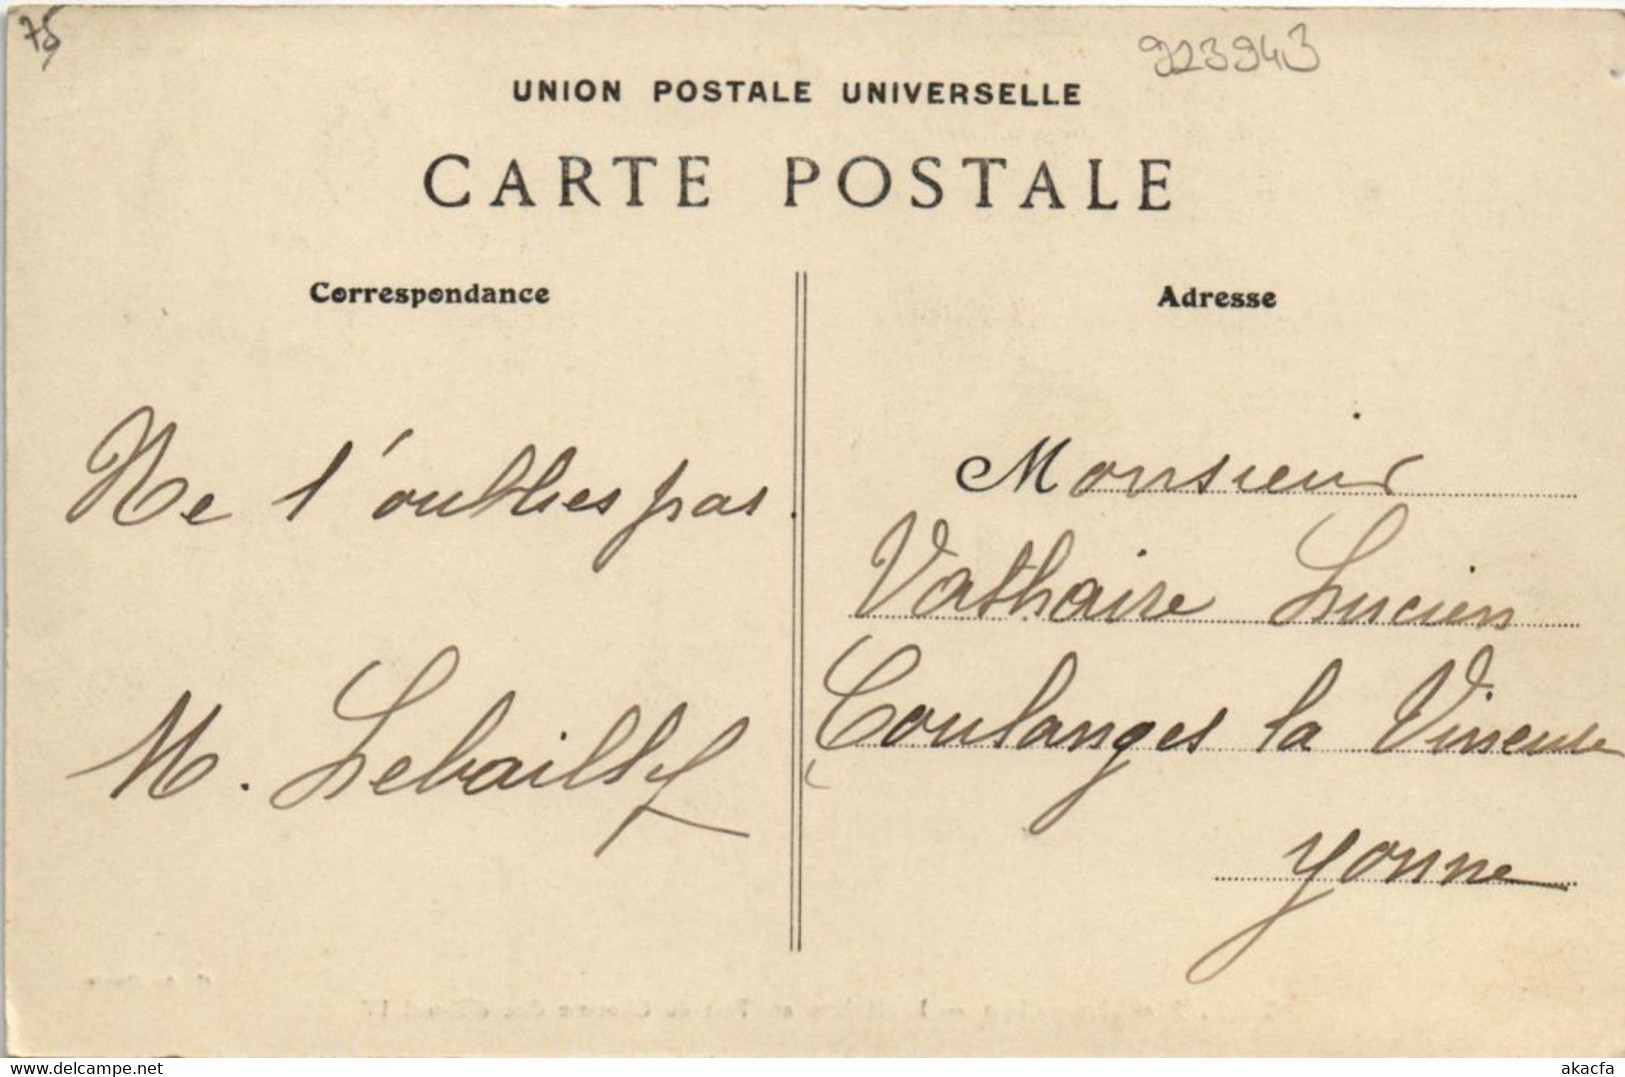 75
923943
UNION POSTALE UNIVERSELLE
CARTE POSTALE
Correspondance
Adresse
Ne l'oublies pas.
M. Lebailly
Monsieur
Vathaire Lucien
Coulanges la Vineuse
Yonne
www.delcampe.net
akacfa